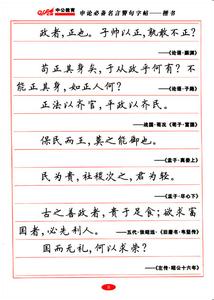 中公教育 申论必备名言警句字帖——楷书
政者,正也。子帅以正,孰敢不正?
——《论语·颜渊》
苟正其身矣,于从政乎何有?不
能正其身,如正人何?
——《论语·子路》
正法以齐官,平政以齐民。
——战国·荀况《荀子·富国》
保民而王,莫之能御也。
——《孟子·离娄上》
民为贵,社稷次之,君为轻。
——《孟子·尽心下》
古之善政者,贵于足食;欲求富
国者,必先利人。
——五代·张昭远《旧唐书·韦坚传》
国而无礼,何以求荣?
——《左传·昭公十六年》